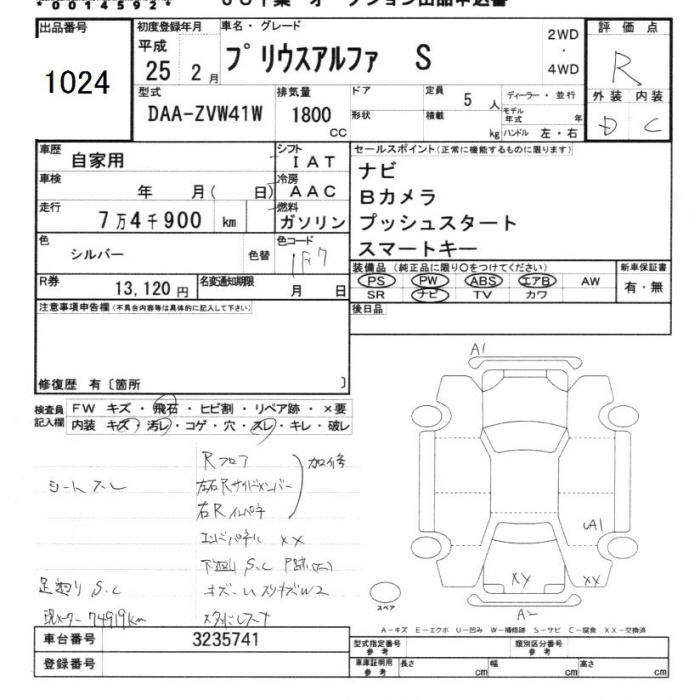 *0014592*
出品番号
1024
初度登録年月
平成
25 2月
車名・グレード
プリウスアルファ S
2WD
・
4WD
評価点
R
外装 内装
D C
型式
DAA-ZVW41W
排気量
1800
CC
ドア
形状
定員 5 人
積載 kg
ディーラー・並行
モデル年式 年
ハンドル 左・右
車歴
自家用
シフト
IAT
車検
年 月( 日)
冷房
AAC
走行
7万4千900 km
燃料
ガソリン
色
シルバー
色替
色コード
1F7
R券
13,120円
名変通知期限
月 日
セールスポイント(正常に機能するものに限ります)
ナビ
Bカメラ
プッシュスタート
スマートキー
装備品(純正品に限り○をつけてください)
PS PW ABS エアB AW
SR ナビ TV カワ
新車保証書
有・無
後日品
注意事項申告欄(不具合内容等は具体的に記入して下さい)
修復歴 有〔箇所 〕
検査員
記入欄
FW キズ・飛石・ヒビ割・リペア跡・×要
内装 キズ・汚レ・コゲ・穴・スレ・キレ・破レ
Rフロア
左右Rサイドメンバー
右Rインパネ
加修
シートスレ
エンドパネル XX
下廻り S.C
足廻り S.C
現メーター 74919km
A1
A1
XY
XX
A2
スペア
A-キズ E-エクボ U-凹み W-補修跡 S-サビ C-腐食 XX-交換済
車台番号
3235741
登録番号
型式指定番号
参考
類別区分番号
参考
車庫証明用
参考
長さ cm
幅 cm
高さ cm